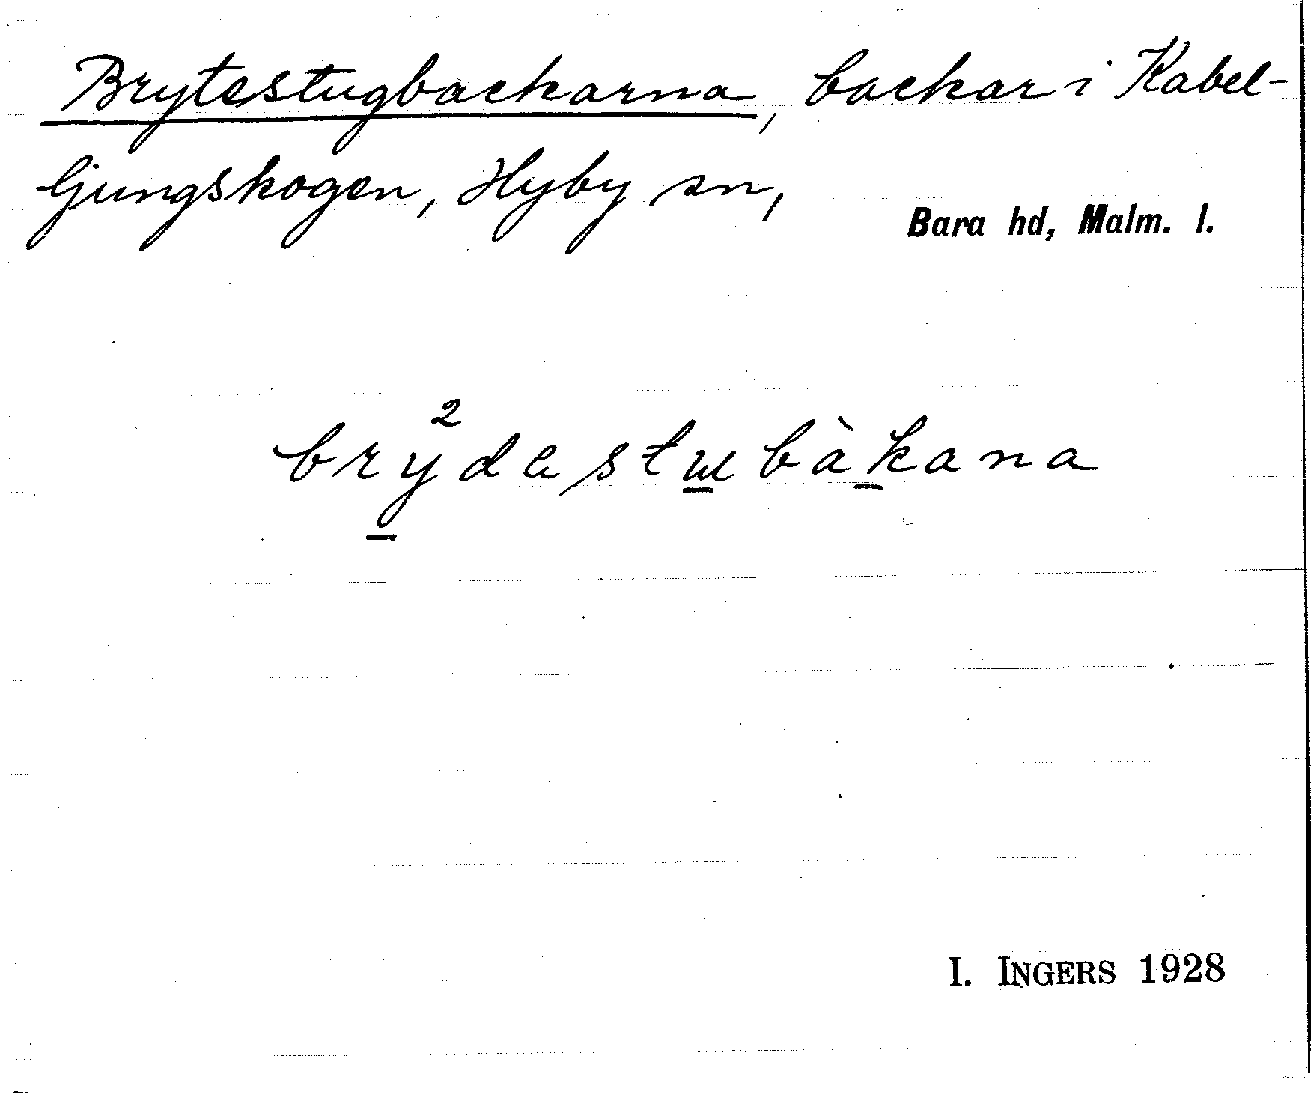 Brytestugbackarna, backar i Kabel-
ljungskogen, Hyby sn,
Bara hd, Malm. l.
brỳ²dastubàkana
I. INGERS 1928